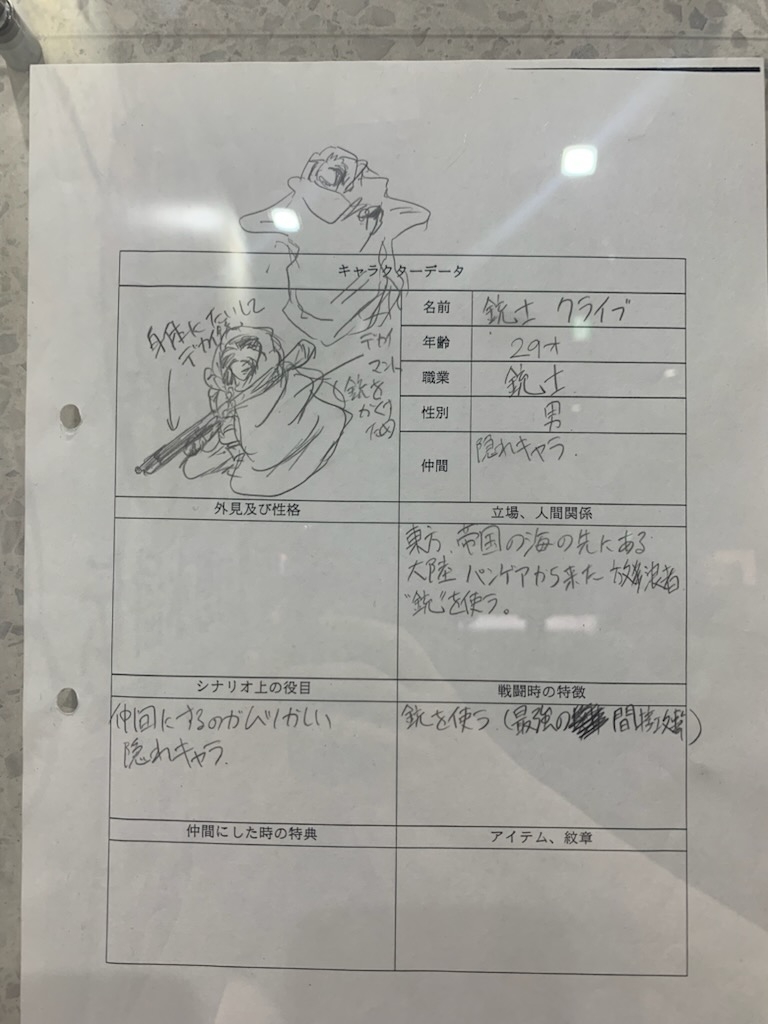 キャラクターデータ
身体にたいして
デカイ銃
デカイ
マント
銃を
かくす
ため
名前 銃士 クライブ
年齢 29才
職業 銃士
性別 男
仲間 隠れキャラ.
外見及び性格
立場、人間関係
東方、帝国の海の先にある
大陸 パンゲアから来た 放浪者
"銃"を使う。
シナリオ上の役目
仲間にするのがむずかしい
隠れキャラ.
戦闘時の特徴
銃を使う (最強の 間接攻撃)
仲間にした時の特典
アイテム、紋章